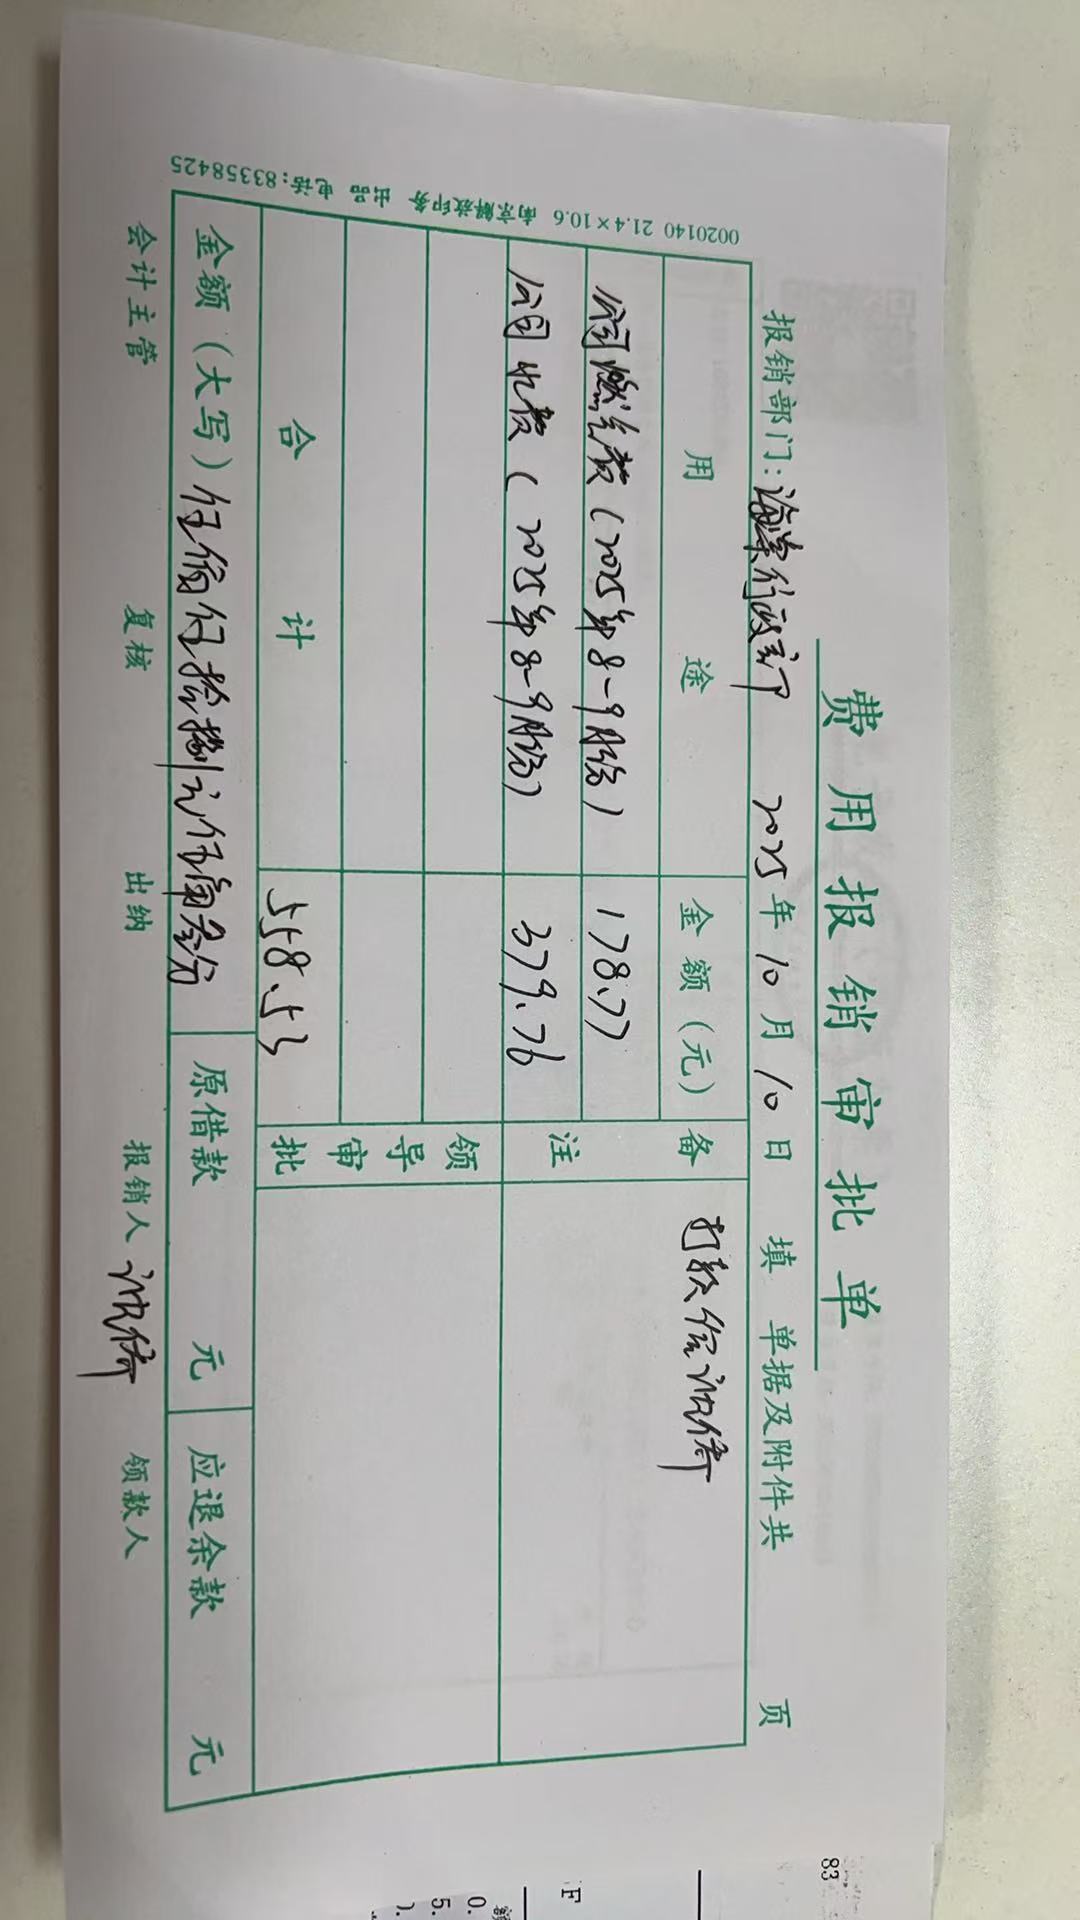 费用报销审批单
报销部门：海荣行政部 2025年10月10日填 单据及附件共 页
用途 金额（元） 备注 打款给
公司燃气费（2025年8-9月份） 178.77
公司水费（2025年8-9月份） 379.76
领导审批
合计 558.53
金额（大写）伍佰伍拾捌元伍角叁分 原借款 元 应退余款 元
会计主管 复核 出纳 报销人 领款人
0020140 21.4×10.6 南京解放印务 出品 电话：83358425
83
F
额
0.
5.